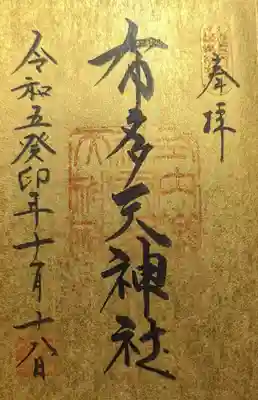 奉拝
布多天神社
令和五癸卯年十一月十八日